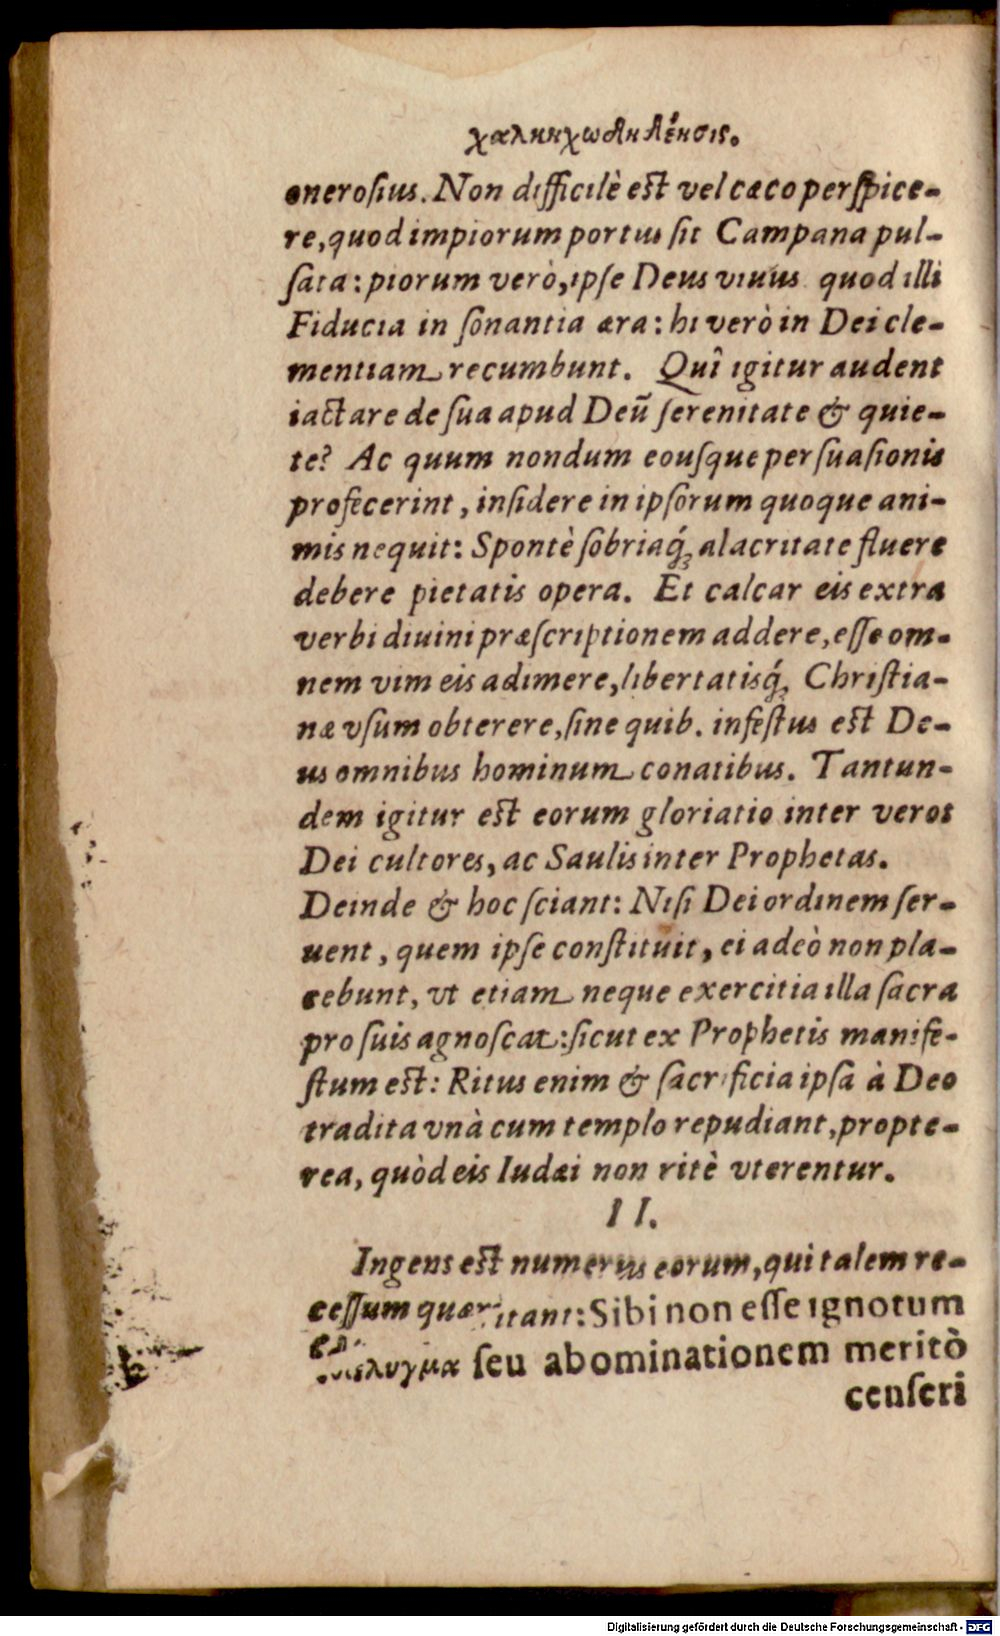 χαληηχωδηλένσις.
onerosius. Non difficilè est vel cæco perspice-
re, quod impiorum portus sit Campana pul-
sata: piorum verò, ipse Deus viuus quod illi
Fiducia in sonantia æra: hi verò in Dei cle-
mentiam recumbunt. Quî igitur audent
iactare de sua apud Deũ serenitate & quie-
te? Ac quum nondum eousque persuasionis
profecerint, insidere in ipsorum quoque ani-
mis nequit: Spontè sobriaq́; alacritate fluere
debere pietatis opera. Et calcar eis extra
verbi diuini præscriptionem addere, esse om-
nem vim eis adimere, libertatisq́; Christia-
næ vsum obterere, sine quib. infestus est De-
us omnibus hominum conatibus. Tantun-
dem igitur est eorum gloriatio inter veros
Dei cultores, ac Saulis inter Prophetas.
Deinde & hoc sciant: Nisi Dei ordinem ser-
uent, quem ipse constituit, ei adeò non pla-
cebunt, vt etiam neque exercitia illa sacra
pro suis agnoscat: sicut ex Prophetis manife-
stum est: Ritus enim & sacrificia ipsa à Deo
tradita vnà cum templo repudiant, propte-
rea, quòd eis Iudæi non ritè vterentur.
II.
Ingens est numerus eorum, qui talem re-
cessum quæritant: Sibi non esse ignotum
seu abominationem meritò
censeri
Digitalisierung gefördert durch die Deutsche Forschungsgemeinschaft - DFG